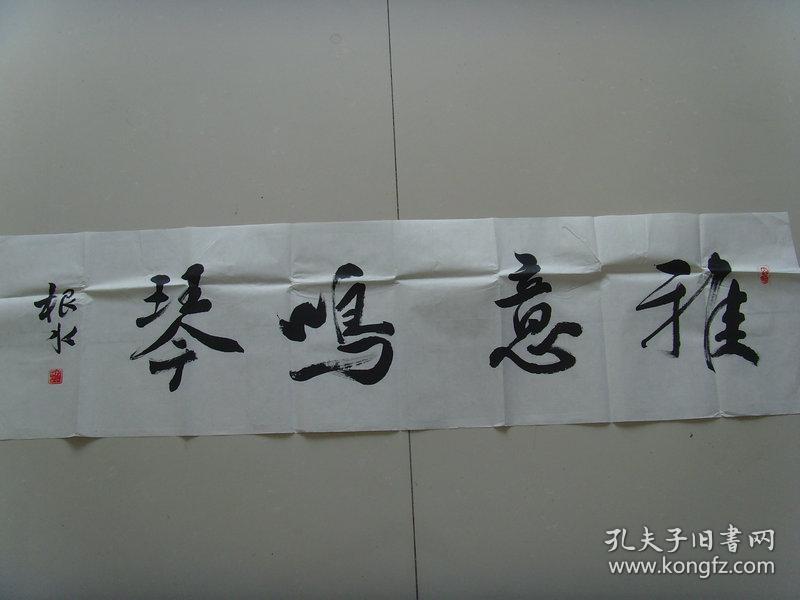 雅意鸣琴
根水
孔夫子旧書网
www.kongfz.com